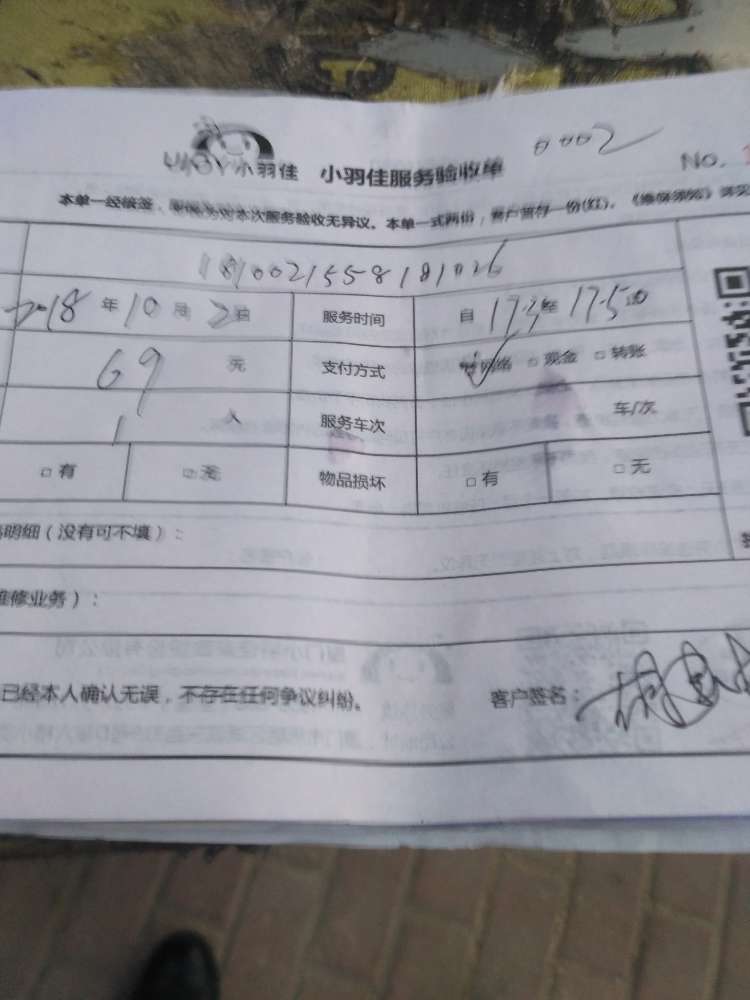 小羽佳 小羽佳服务验收单 0002 No.
本单一经签,对本次服务验收无异议。本单一式两份,客户留存一份(红)。
181002155818 1026
2018 年 10 月 2 日 服务时间 自 17:3 至 17:50
69 元 支付方式 网络 □ 现金 □ 转账
1 人 服务车次 车/次
□ 有 ☑ 无 物品损坏 □ 有 □ 无
明细(没有可不填):
维修业务):
已经本人确认无误,不存在任何争议纠纷。 客户签名: